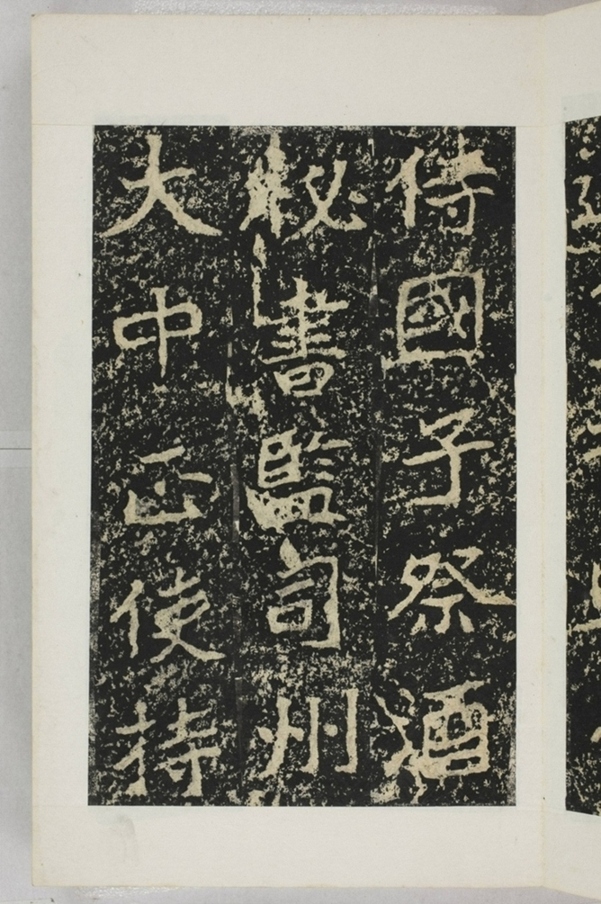 侍國子祭酒
秘書監司州
大中正使持